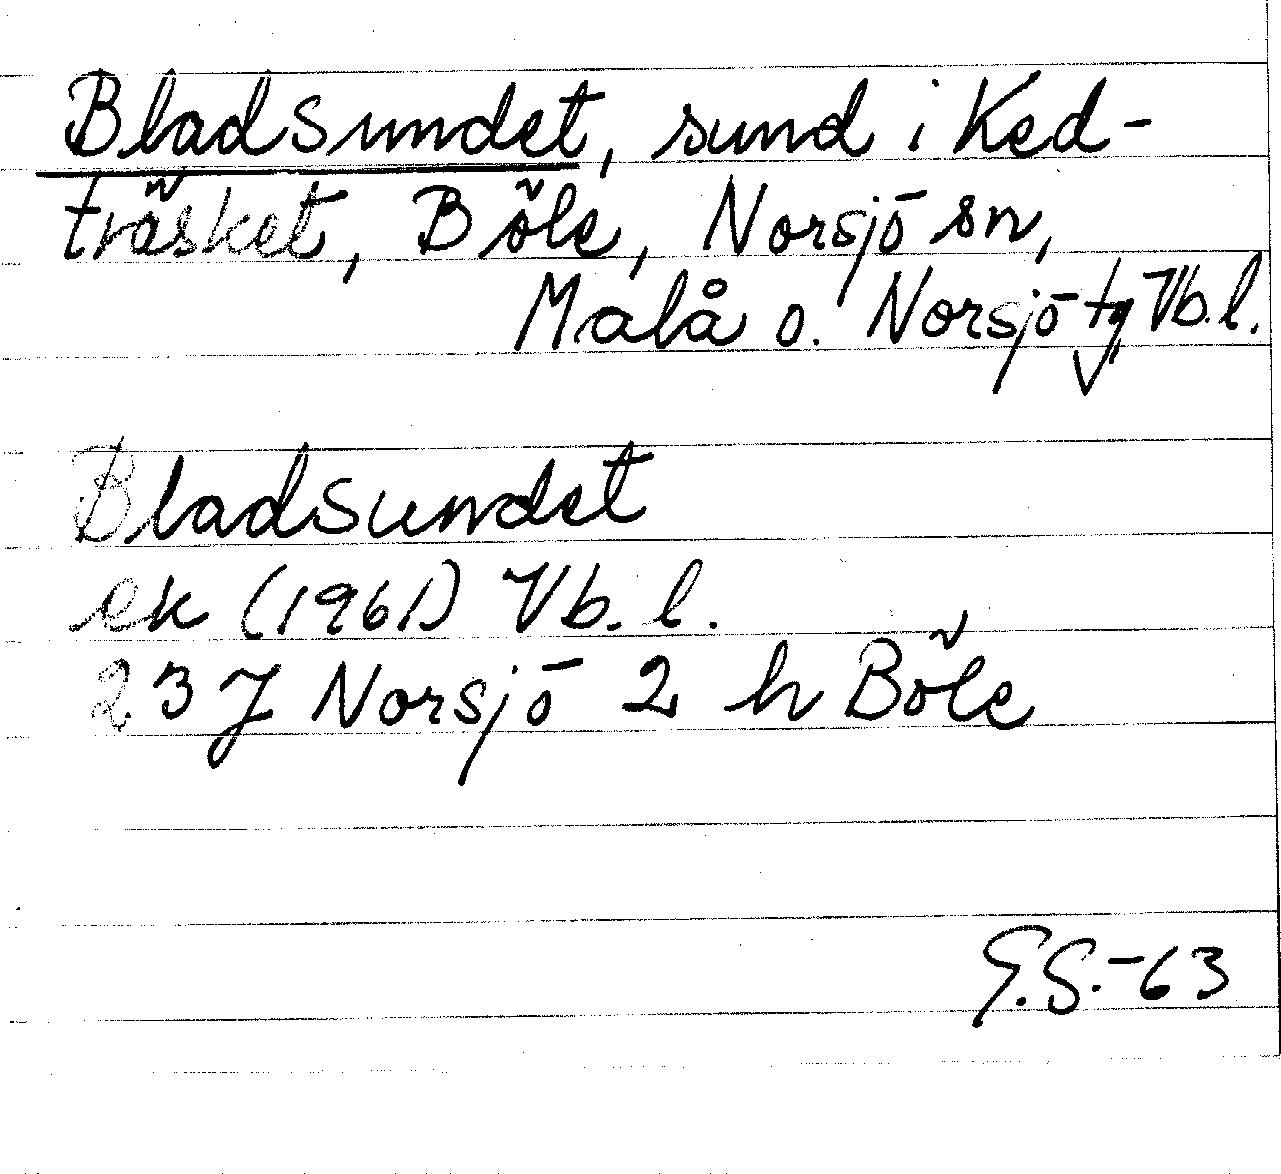 Bladsundet, sund i Ked-
träsket, Böle, Norsjö sn,
Malå o. Norsjö tg Vb.l.
Bladsundet
ek (1961) Vb. l.
23J Norsjö 2 h Böle
G.S.-63